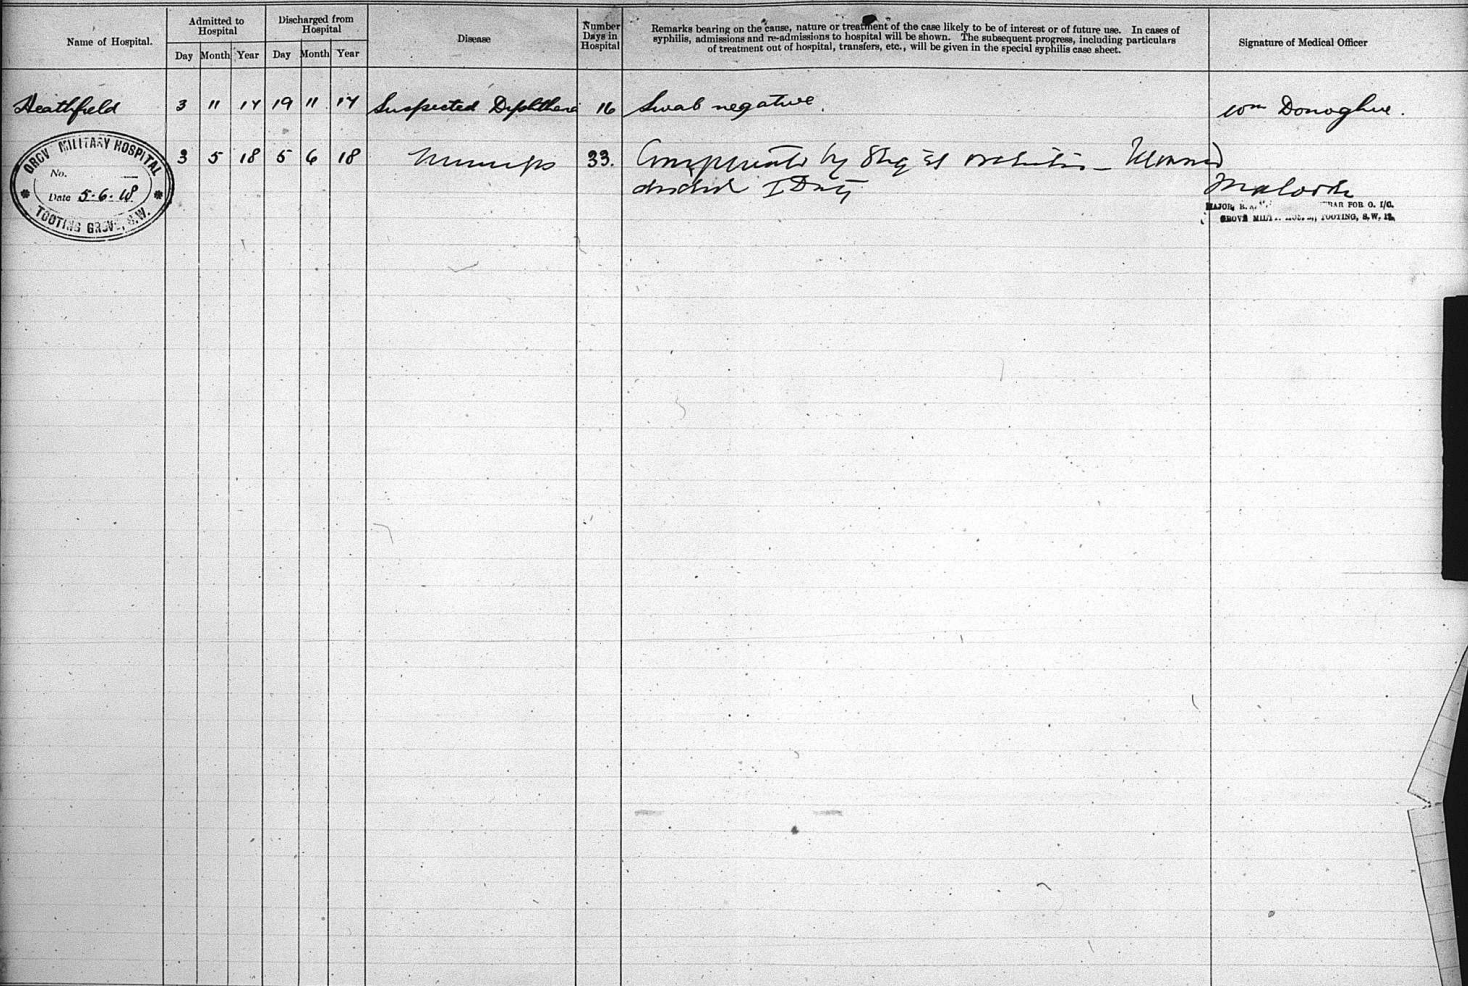 Name of Hospital.
Admitted to Hospital
Discharged from Hospital
Day Month Year Day Month Year
Disease
Number Days in Hospital
Remarks bearing on the cause, nature or treatment of the case likely to be of interest or of future use. In cases of
syphilis, admissions and re-admissions to hospital will be shown. The subsequent progress, including particulars
of treatment out of hospital, transfers, etc., will be given in the special syphilis case sheet.
Signature of Medical Officer
Heathfield 3 11 17 19 11 17 Suspected Diphtheria 16 Swab negative. Wm Donoghue.
GROVE MILITARY HOSPITAL
No.
Date 5.6.18
TOOTING GROVE, S.W.
3 5 18 5 6 18 Mumps 33. by orchitis
Duty
MAJOR, R.A. FOR O. I/C.
GROVE TOOTING, S.W. 17.